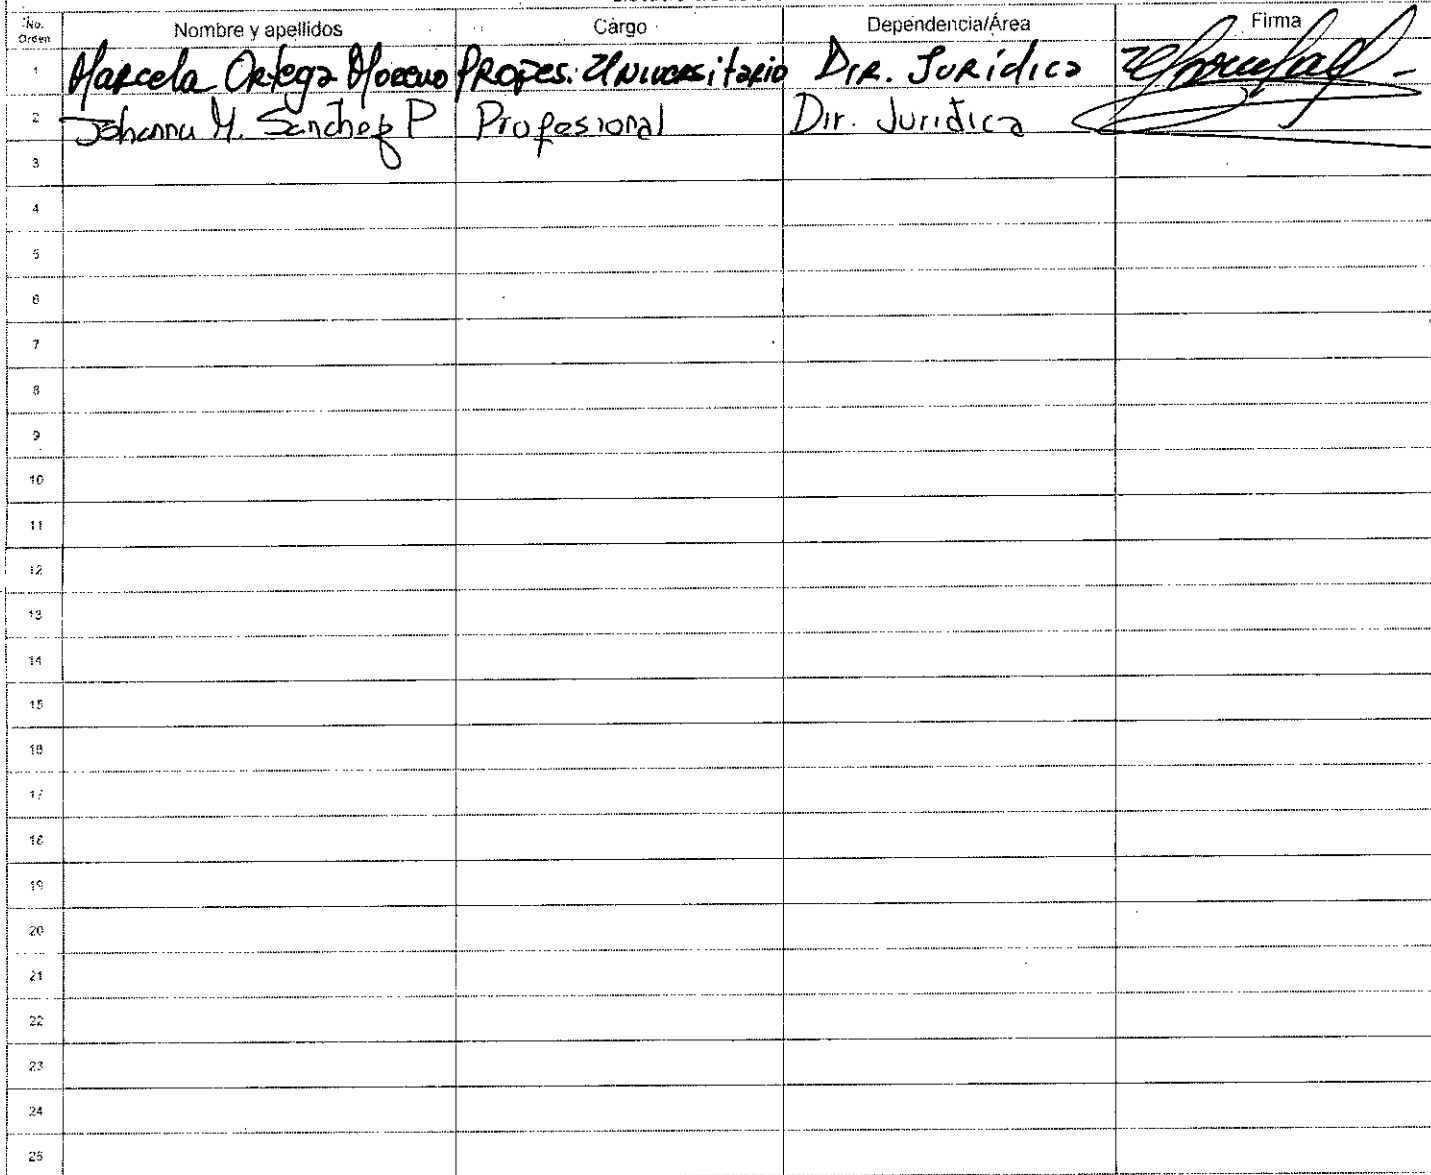 No. Orden Nombre y apellidos Cargo Dependencia/Área Firma
1 Marcela Ortega Moreno Profes. Universitario Dir. Jurídica
2 Johanna M. Sanchez P Profesional Dir. Juridica
3
4
5
6
7
8
9
10
11
12
13
14
15
16
17
18
19
20
21
22
23
24
25